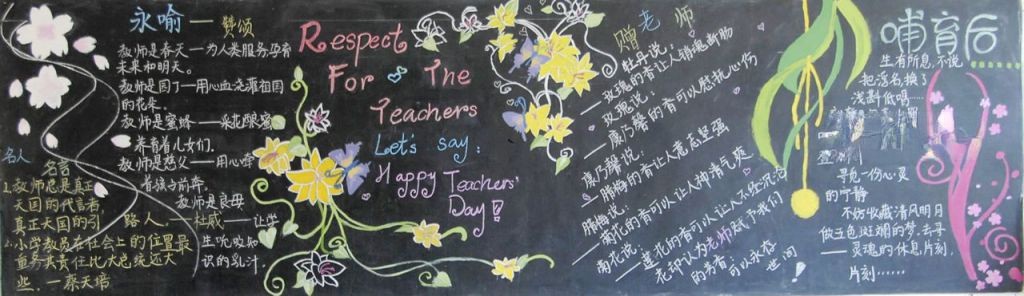 永喻一赞颂
教师是春天一为人类服务孕育
未来和明天。
教师是园丁一用心血浇灌祖国
的花朵。
教师是蜜蜂一采花酿蜜
来养着儿女们.
教师是慈父一用心牵
着孩子前奔.
教师是良母
让学
生吮吸知
识的乳汁.
名人
名言
1.教师总是真正
天国的代言者
真正天国的引
路人.——杜威
2.小学教员在社会上的位置最
重要其责任比大总统还大
些.—蔡元培
Respect
For The
Teachers
Let's say:
Happy Teachers'
Day!
赠老师
牡丹说,
玫瑰的香让人销魂断肠
玫瑰说:
康乃馨的香可以慰抚心伤
康乃馨说.
腊梅的香让人意志坚强
腊梅说.
菊花的香可以让人神清气爽
菊花说:
莲花的香可以让人不经沉沦
花却认为老师赋予我们
的芳香,可以永存
世间!
哺育后
生有所息,不说
把浮名换了
浅斟低唱……
寻觅一份心灵
的宁静
不妨收藏清风明月
做五色斑斓的梦.去寻
灵魂的休息片刻.
片刻……